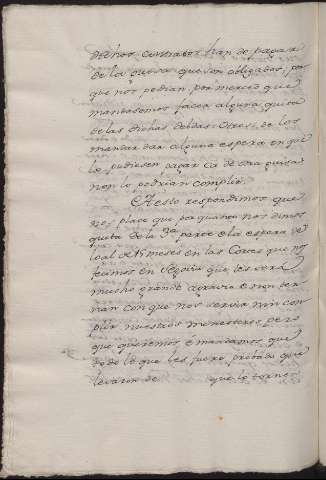 dichos contratos han de pagar
de la guisa que son obligados, por
que nos pedian por merced que
mandasemos facer alguna quita
de las dichas deudas. Otrosi, de los
mandar dar alguna espera en que
las pudiesen pagar ca de otra guisa
non lo podrian complir.
A esto respondimos que
nos place que por quanto nos dimos
quita de la 3ª parte e la espera de
los 15 meses en las Cortes que nos
fecimos en Segovia que les será
mucho grande agravio e non ter
nan con que nos servir nin con
plir nuestros menesteres pero
que queremos e mandamos que
todo lo que les fuere probado que
levaron de que lo tornen